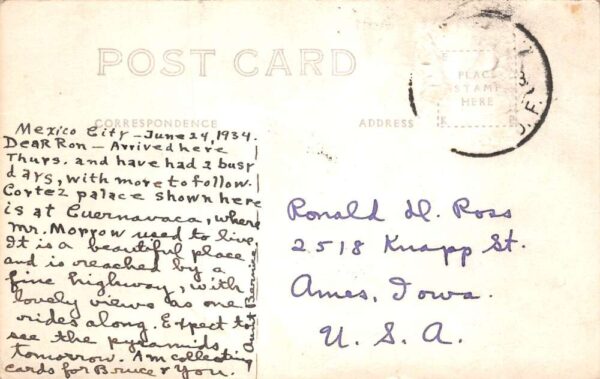 POST CARD
CORRESPONDENCE
ADDRESS
PLACE
STAMP
HERE
D.F.
Mexico City - June 24, 1934.
Dear Ron - Arrived here
Thurs. and have had 2 busy
days, with more to follow.
Cortez palace shown here
is at Cuernavaca, where
Mr. Morrow used to live.
It is a beautiful place
and is reached by a
fine highway, with
lovely views as one
rides along. Expect to
see the pyramids
tomorrow. Am collecting
cards for Bruce & you.
Aunt Bernice
Ronald D. Ross
2518 Knapp St.
Ames, Iowa.
U. S. A.